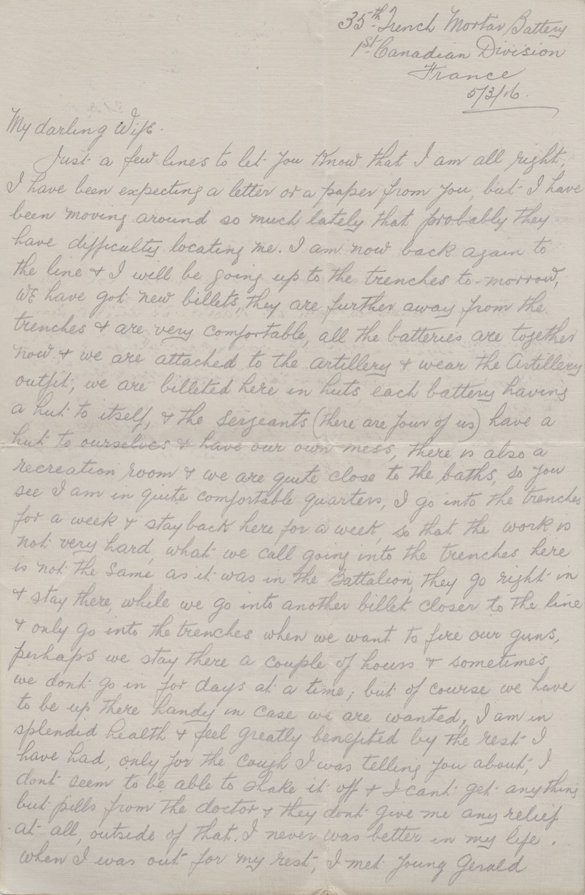 35th Trench Mortar Battery
1st Canadian Division
France
5/3/16.
My darling Wife.
Just a few lines to let you know that I am all right,
I have been expecting a letter or a paper from you, but I have
been moving around so much lately that probably they
have difficulty locating me. I am now back again to
the line & I will be going up to the trenches to-morrow,
we have got new billets, they are further away from the
trenches & are very comfortable, all the batteries are together
now & we are attached to the artillery & wear the Artillery
outfit, we are billeted here in huts each battery having
a hut to itself, & the sergeants (there are four of us) have a
hut to ourselves & have our own mess, there is also a
recreation room & we are quite close to the baths, so you
see I am in quite comfortable quarters, I go into the trenches
for a week & stay back here for a week, so that the work is
not very hard, what we call going into the trenches here
is not the same as it was in the Battalion, they go right in
& stay there, while we go into another billet closer to the line
& only go into the trenches when we want to fire our guns,
perhaps we stay there a couple of hours & sometimes
we dont go in for days at a time, but of course we have
to be up there handy in case we are wanted, I am in
splendid health & feel greatly benefited by the rest I
have had, only for the cough I was telling you about, I
dont seem to be able to shake it off & I cant get anything
but pills from the doctor & they dont give me any relief
at all, outside of that I never was better in my life.
When I was out for my rest, I met young Gerald